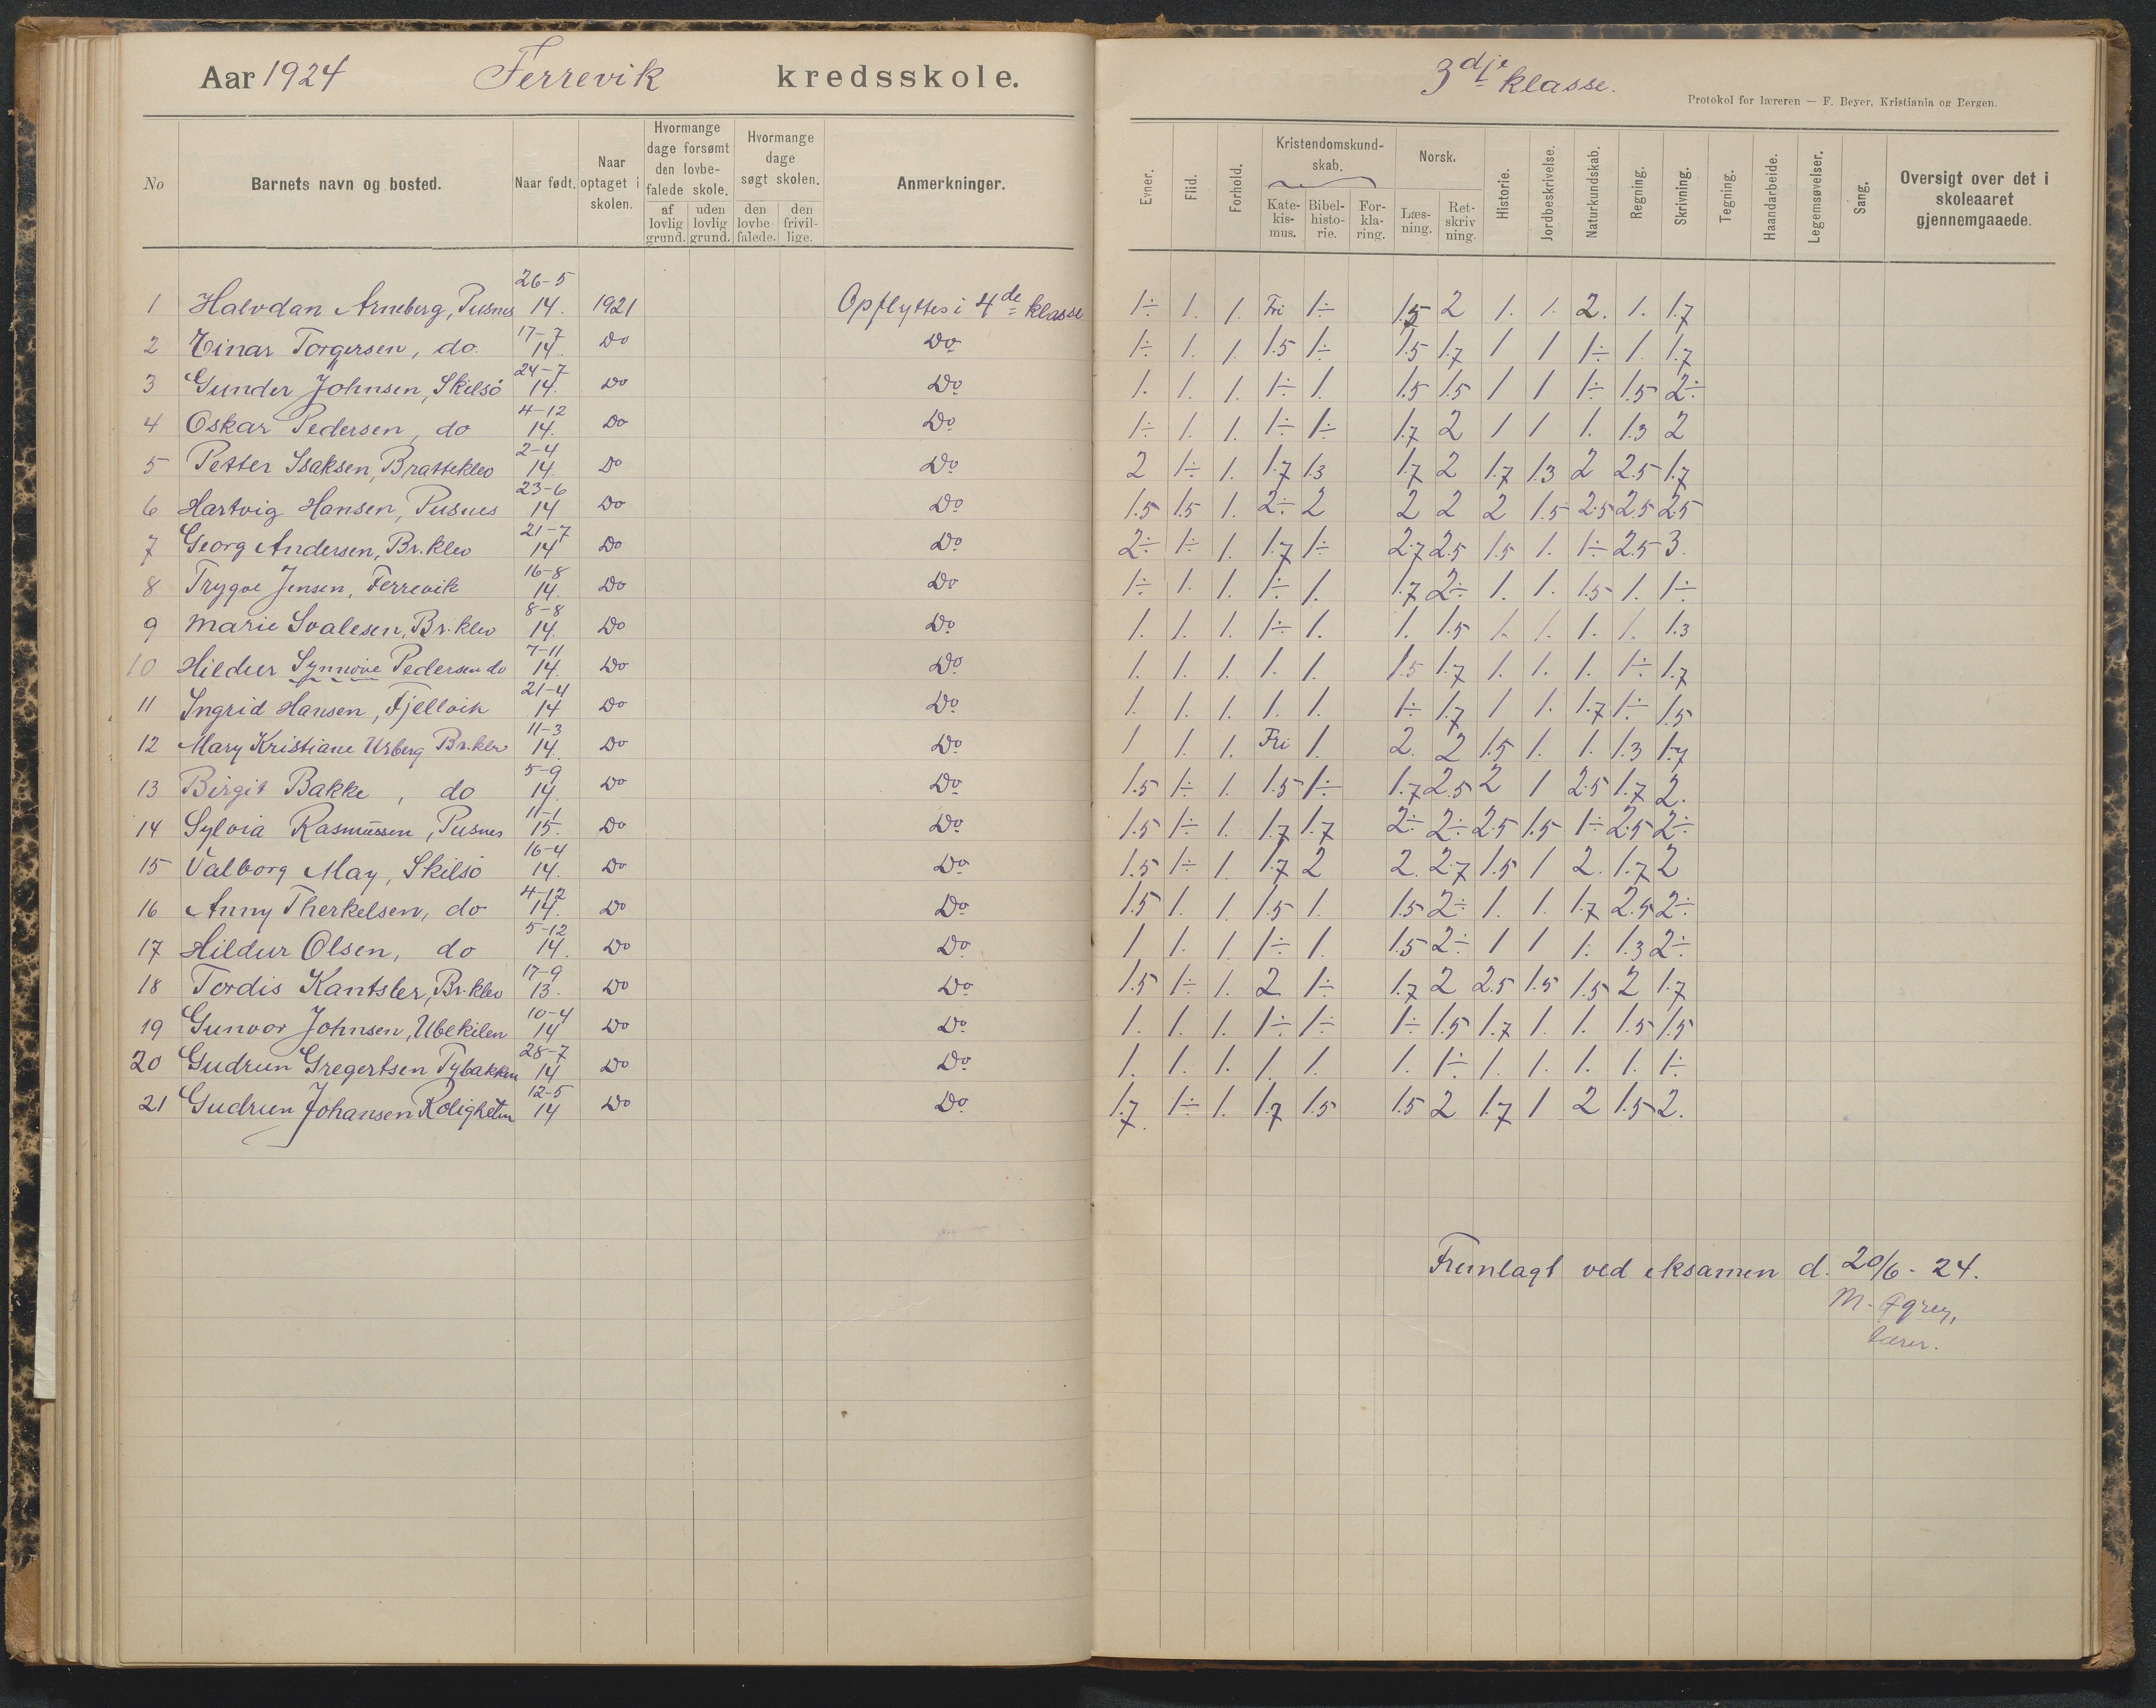 Aar 1924 Ferrevik kredsskole.
No
Barnets navn og bosted.
Naar født.
Naar optaget i skolen.
Hvormange dage forsømt den lovbefalede skole.
af lovlig grund.
uden lovlig grund.
Hvormange dage søgt skolen.
den lovbefalede.
den frivillige.
Anmerkninger.
1 Halvdan Arneberg, Pusnes 26-5 14. 1921 Opflyttes i 4de klasse
2 Einar Torgersen, do. 17-7 14. Do Do
3 Gunder Johnsen, Skilsö 24-7 14. Do Do
4 Oskar Pedersen, do 4-12 14. Do Do
5 Petter Isaksen, Bratteklev 2-4 14. Do Do
6 Hartvig Hansen, Pusnes 23-6 14 Do Do
7 Georg Andersen, Br.klev 21-7 14 Do Do
8 Trygve Jensen, Ferrevik 16-8 14. Do Do
9 Marie Svalesen, Br.klev 8-8 14. Do Do
10 Hildur Synnöve Pedersen do 7-11 14. Do Do
11 Ingrid Hansen, Fjellvik 21-4 14 Do Do
12 Mary Kristiane Urberg Br.klev 11-3 14. Do Do
13 Birgit Bakke, do 5-9 14. Do Do
14 Sylvia Rasmussen, Pusnes 11-1 15. Do Do
15 Valborg May, Skilsö 16-4 14. Do Do
16 Anny Therkelsen, do 4-12 14. Do Do
17 Hildur Olsen, do 5-12 14. Do Do
18 Tordis Kantsler, Br.klev 17-9 13. Do Do
19 Gunvor Johnsen, Ubekilen 10-4 14 Do Do
20 Gudrun Gregertsen Tybakken 28-7 14 Do Do
21 Gudrun Johansen Roligheten 12-5 14 Do Do
3dje klasse.
Protokol for læreren — F. Beyer, Kristiania og Bergen.
Evner.
Flid.
Forhold.
Kristendomskundskab.
Katekismus.
Bibelhistorie.
Forklaring.
Norsk.
Læsning.
Retskrivning.
Historie.
Jordbeskrivelse.
Naturkundskab.
Regning.
Skrivning.
Tegning.
Haandarbeide.
Legemsøvelser.
Sang.
Oversigt over det i skoleaaret gjennemgaaede.
1÷ 1. 1. Fri 1÷ 1.5 2 1. 1. 2. 1. 1.7
1÷ 1. 1. 1.5 1÷ 1.5 1.7 1 1 1÷ 1. 1.7
1. 1. 1. 1÷ 1. 1.5 1.5 1 1 1÷ 1.5 2÷
1÷ 1. 1. 1÷ 1÷ 1.7 2 1 1 1. 1.3 2
2 1÷ 1. 1.7 1.3 1.7 2 1.7 1.3 2 2.5 1.7
1.5 1.5 1. 2÷ 2 2 2 2 1.5 2.5 2.5 2.5
2÷ 1÷ 1. 1.7 1÷ 2.7 2.5 1.5 1. 1÷ 2.5 3.
1÷ 1. 1. 1÷ 1. 1.7 2÷ 1. 1. 1.5 1. 1÷
1. 1. 1. 1÷ 1. 1. 1.5 1. 1. 1. 1. 1.3
1. 1. 1. 1. 1. 1.5 1.7 1. 1. 1. 1÷ 1.7
1. 1. 1. 1. 1. 1÷ 1.7 1 1. 1.7 1÷ 1.5
1 1. 1. Fri 1. 2. 2 1.5 1. 1. 1.3 1.7
1.5 1÷ 1. 1.5 1÷ 1.7 2.5 2 1 2.5 1.7 2.
1.5 1÷ 1. 1.7 1.7 2÷ 2÷ 2.5 1.5 1÷ 2.5 2÷
1.5 1÷ 1. 1.7 2 2. 2.7 1.5 1 2. 1.7 2
1.5 1. 1. 1.5 1. 1.5 2÷ 1. 1. 1.7 2.5 2÷
1 1. 1. 1÷ 1. 1.5 2÷ 1 1 1. 1.3 2÷
1.5 1÷ 1. 2 1÷ 1.7 2 2.5 1.5 1.5 2 1.7
1. 1. 1. 1÷ 1÷ 1÷ 1.5 1.7 1. 1. 1.5 1.5
1. 1. 1. 1. 1. 1. 1÷ 1. 1. 1. 1. 1÷
1.7. 1÷ 1. 1.7 1.5 1.5 2 1.7 1 2 1.5 2.
Fremlagt ved eksamen d. 20/6 - 24.
M.
lærer.